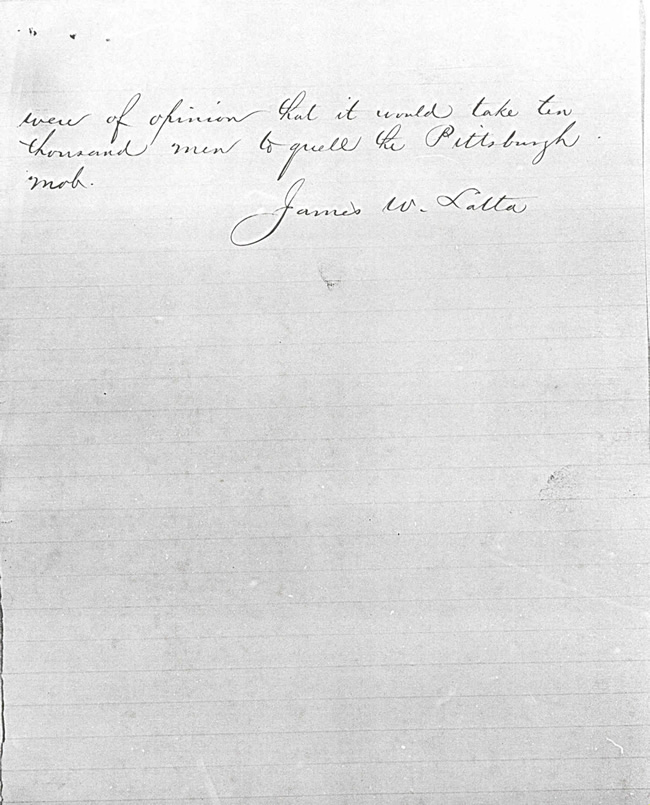 were of opinion that it would take ten
thousand men to quell the Pittsburgh
mob.
James W. Latta